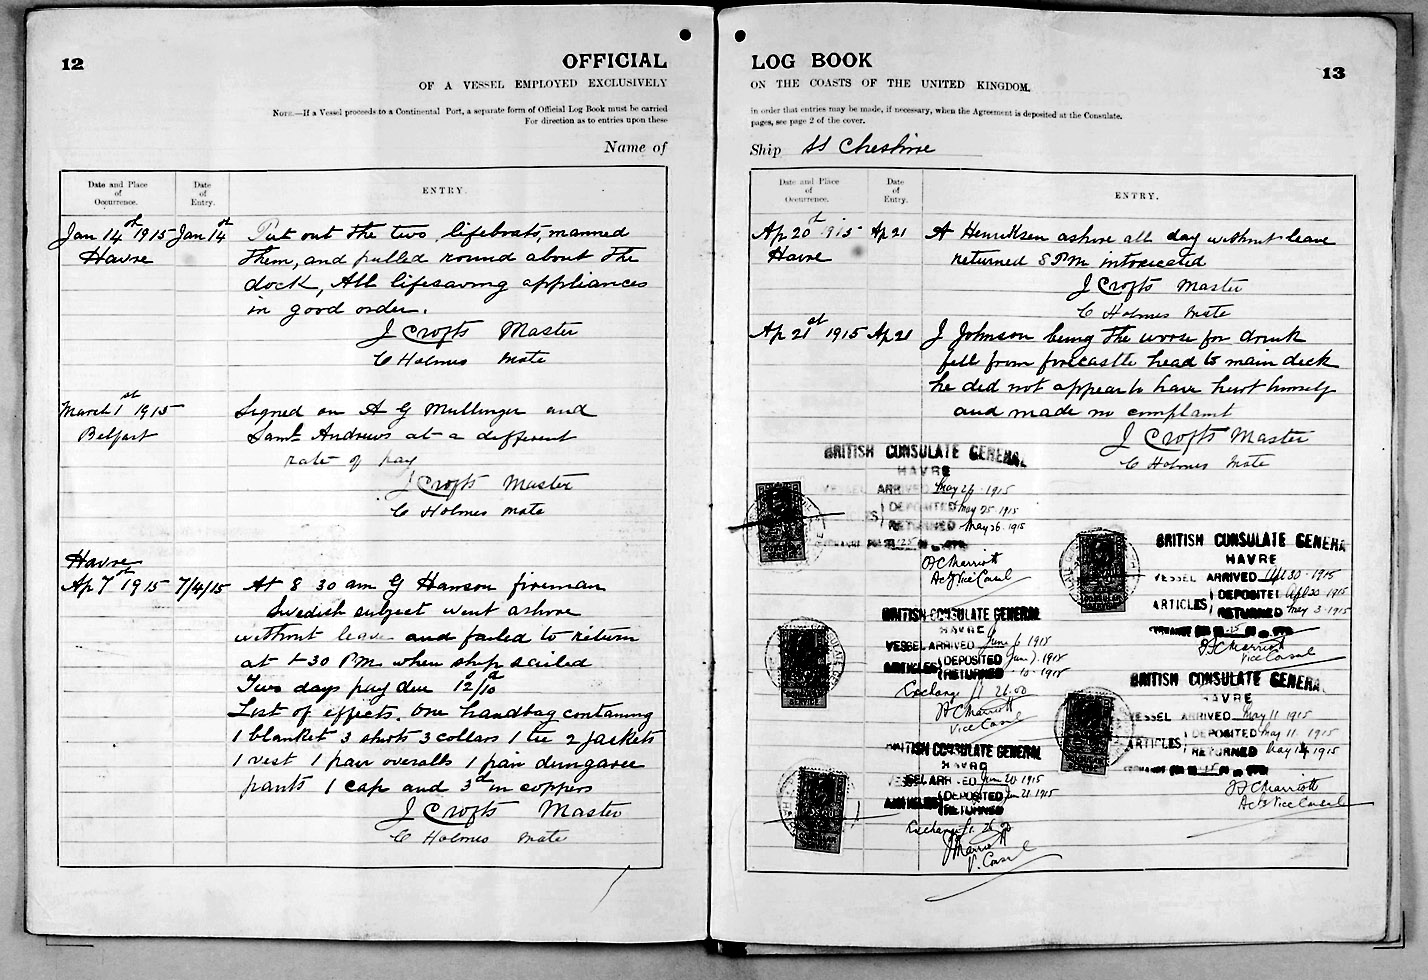 12
OFFICIAL
OF A VESSEL EMPLOYED EXCLUSIVELY
NOTE.—If a Vessel proceeds to a Continental Port, a separate form of Official Log Book must be carried
For direction as to entries upon these
Name of
Date and Place of Occurrence.
Date of Entry.
ENTRY.
Jan 14th 1915 Jan 14th Put out the two lifeboats, manned
Havre them, and pulled round about the
dock, All lifesaving appliances
in good order.
J Crofts Master
C Holmes Mate
March 1st 1915 Signed on A G Mullinger and
Belfast Saml Andrews at a different
rate of pay
J Crofts Master
C Holmes Mate
Havre
Ap 7th 1915 7/4/15 At 8 30 am G Hanson fireman
Swedish subject went ashore
without leave and failed to return
at 4-30 PM when ship sailed
Two days pay due 12/10
List of effects. One handbag containing
1 blanket 3 shirts 3 collars 1 tie 2 jackets
1 vest 1 pair overalls 1 pair dungaree
pants 1 cap and 3d in coppers
J Crofts Master
C Holmes Mate
LOG BOOK
13
ON THE COASTS OF THE UNITED KINGDOM.
in order that entries may be made, if necessary, when the Agreement is deposited at the Consulate.
pages, see page 2 of the cover.
Ship SS Cheshire
Date and Place of Occurrence.
Date of Entry.
ENTRY.
Ap 20th 1915 Ap 21 A Henriksen ashore all day without leave
Havre returned 5 PM intoxicated
J Crofts Master
C Holmes Mate
Ap 21st 1915 Ap 21 J Johnson being the worse for drink
fell from forecastle head to main deck
he did not appear to have hurt himself
and made no complaint
J Crofts Master
C Holmes Mate
BRITISH CONSULATE GENERAL
HAVRE
VESSEL ARRIVED May 26 1915
DEPOSITED May 25 1915
RETURNED May 26 1915
J C Marriott
Actg Vice Consul
BRITISH CONSULATE GENERA
HAVRE
VESSEL ARRIVED Apl 30 1915
ARTICLES DEPOSITED Apl 30 1915
RETURNED May 3 1915
J C Marriott
Vice Consul
BRITISH CONSULATE GENERAL
HAVRE
VESSEL ARRIVED June 6 1915
ARTICLES DEPOSITED Jun 7 1915
RETURNED 10 1915
Exchange
J C Marriott
Vice Consul
BRITISH CONSULATE GENERA
HAVRE
VESSEL ARRIVED May 11 1915
ARTICLES DEPOSITED May 11 1915
RETURNED May 14 1915
J C Marriott
Actg Vice Consul
BRITISH CONSULATE GENERAL
HAVRE
VESSEL ARRIVED Jun 20 1915
ARTICLES DEPOSITED Jun 21 1915
RETURNED
Exchange
J Marriott
V. Consul